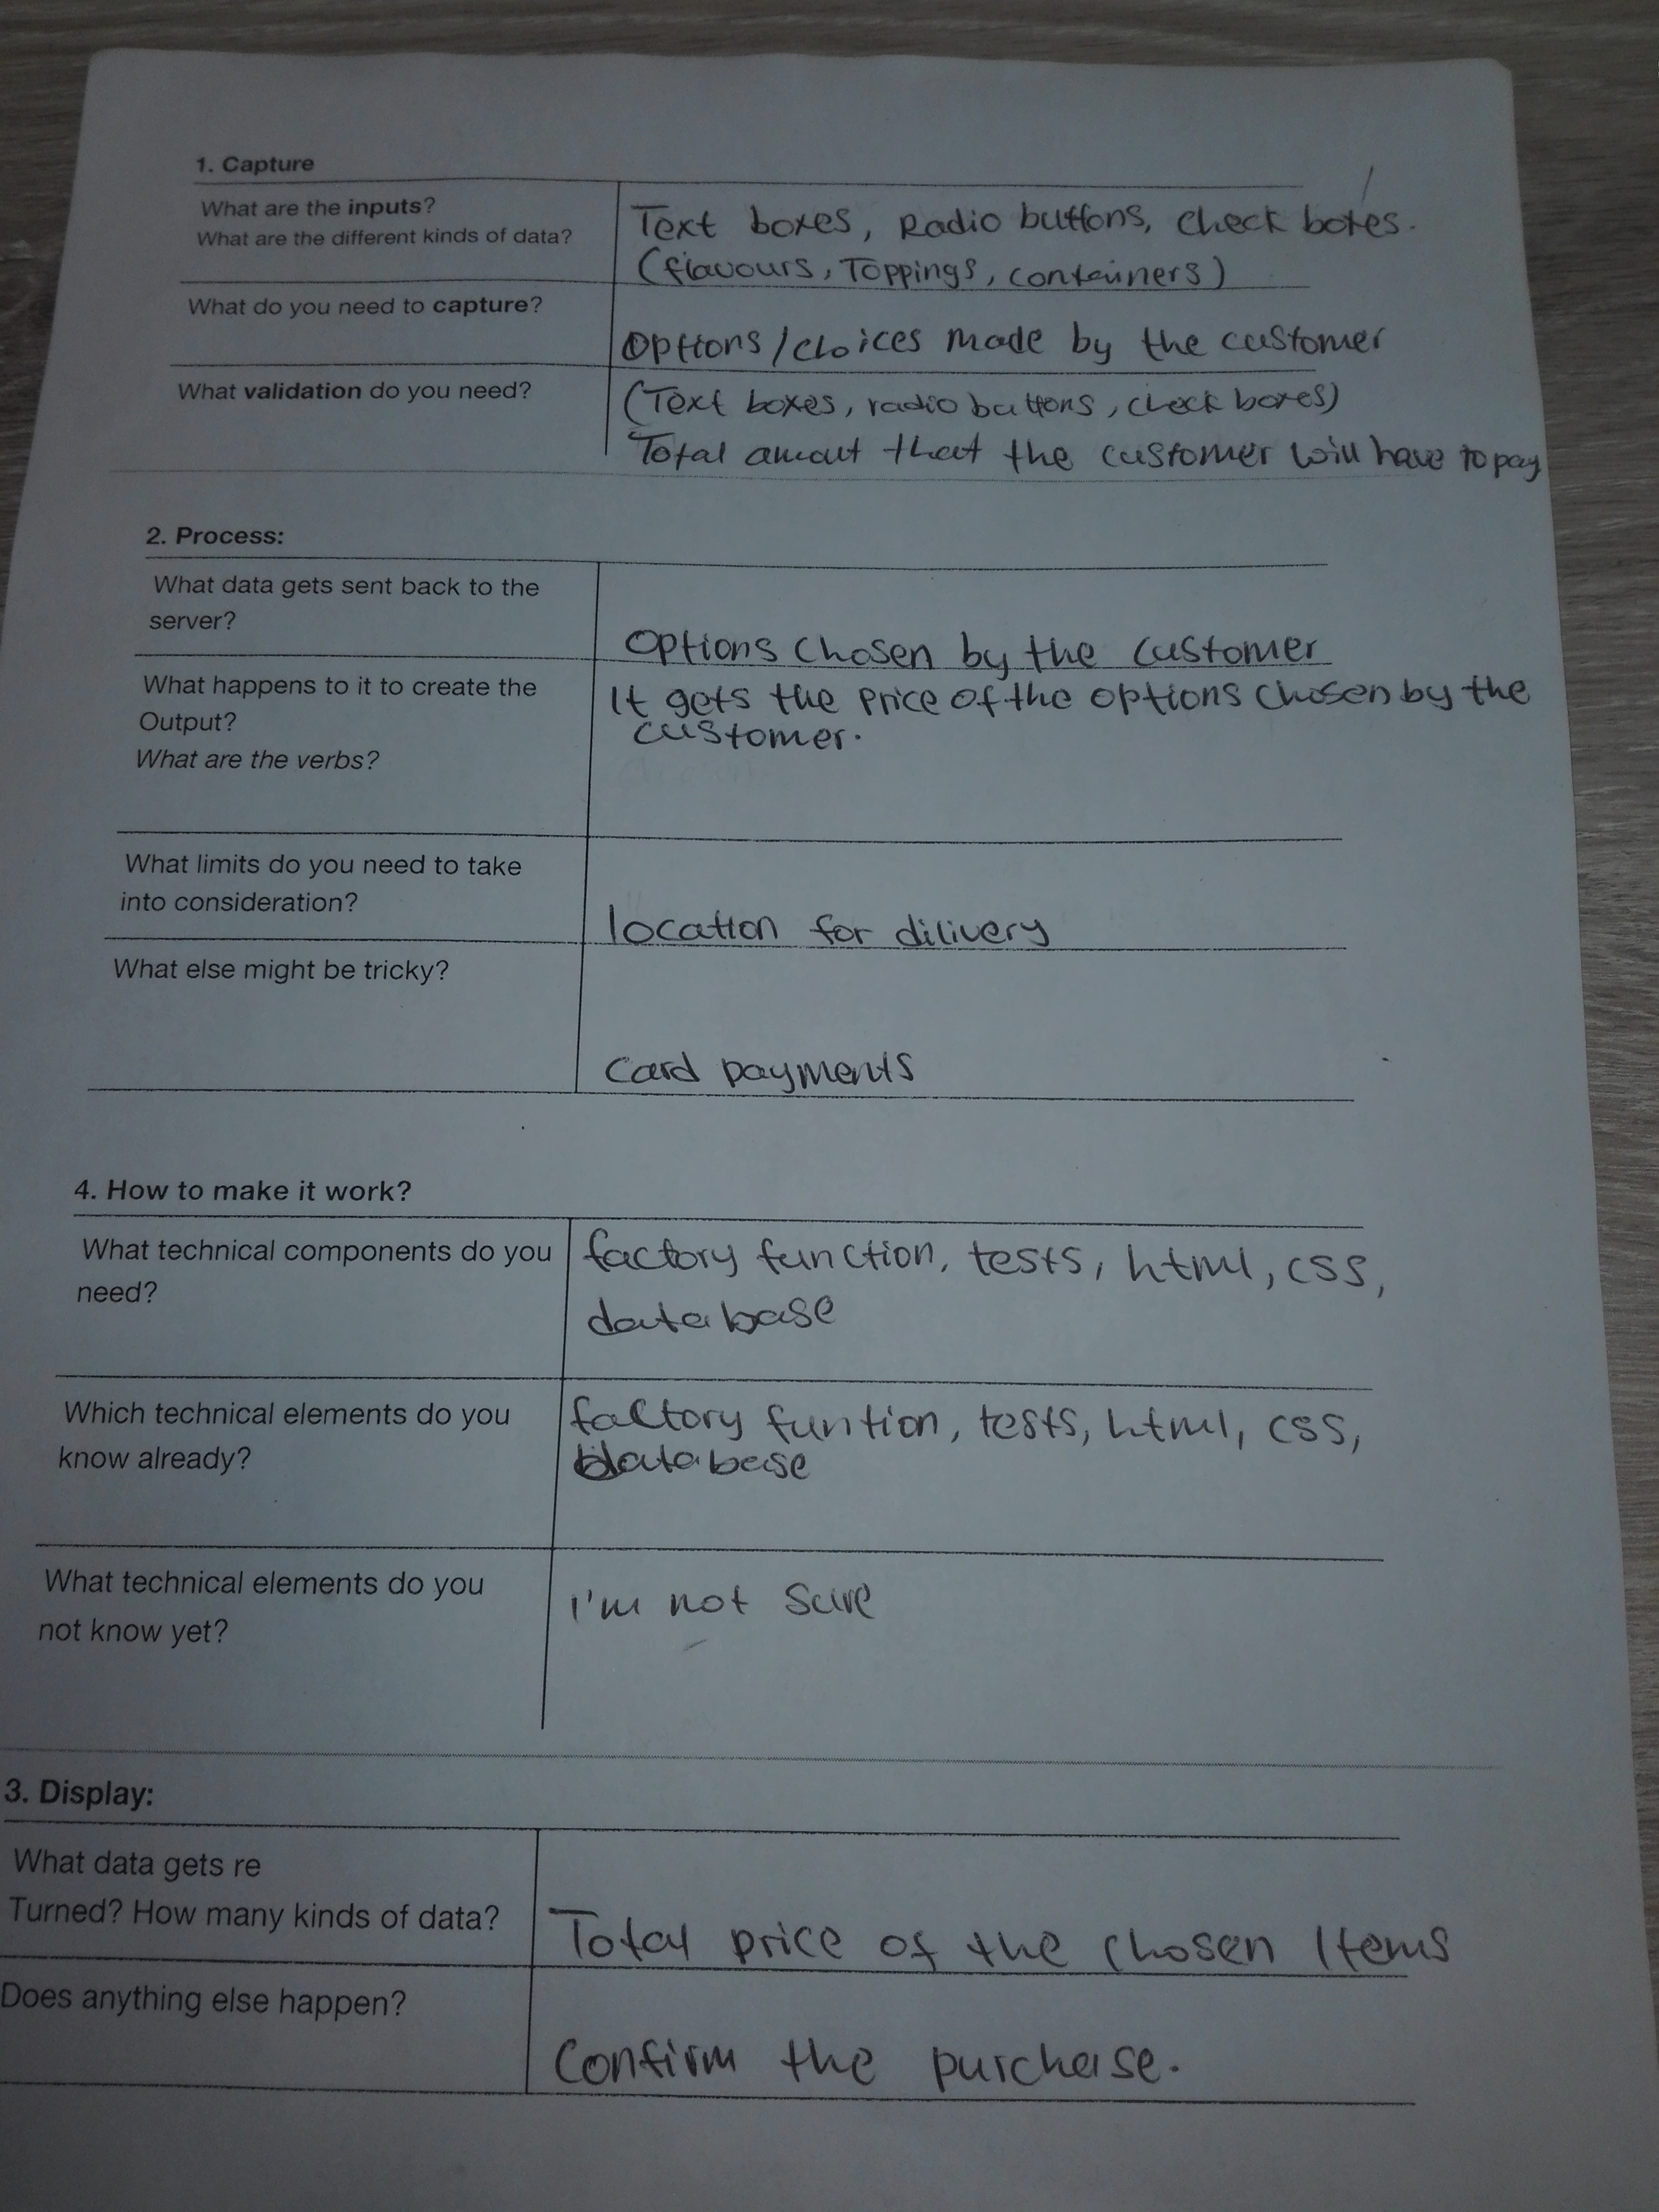 1. Capture
What are the inputs?
What are the different kinds of data?
Text boxes, Radio buttons, check boxes.
(flavours, Toppings, containers)
What do you need to capture?
Options/choices made by the customer
What validation do you need?
(Text boxes, radio buttons, check boxes)
Total amout that the customer will have to pay
2. Process:
What data gets sent back to the
server?
Options chosen by the customer
What happens to it to create the
Output?
What are the verbs?
It gets the price of the options chosen by the
customer.
What limits do you need to take
into consideration?
location for dilivery
What else might be tricky?
Card payments
4. How to make it work?
What technical components do you
need?
factory function, tests, html, css,
database
Which technical elements do you
know already?
factory funtion, tests, html, css,
database
What technical elements do you
not know yet?
I'm not sure
3. Display:
What data gets re
Turned? How many kinds of data?
Total price of the chosen Items
Does anything else happen?
Confirm the purchase.